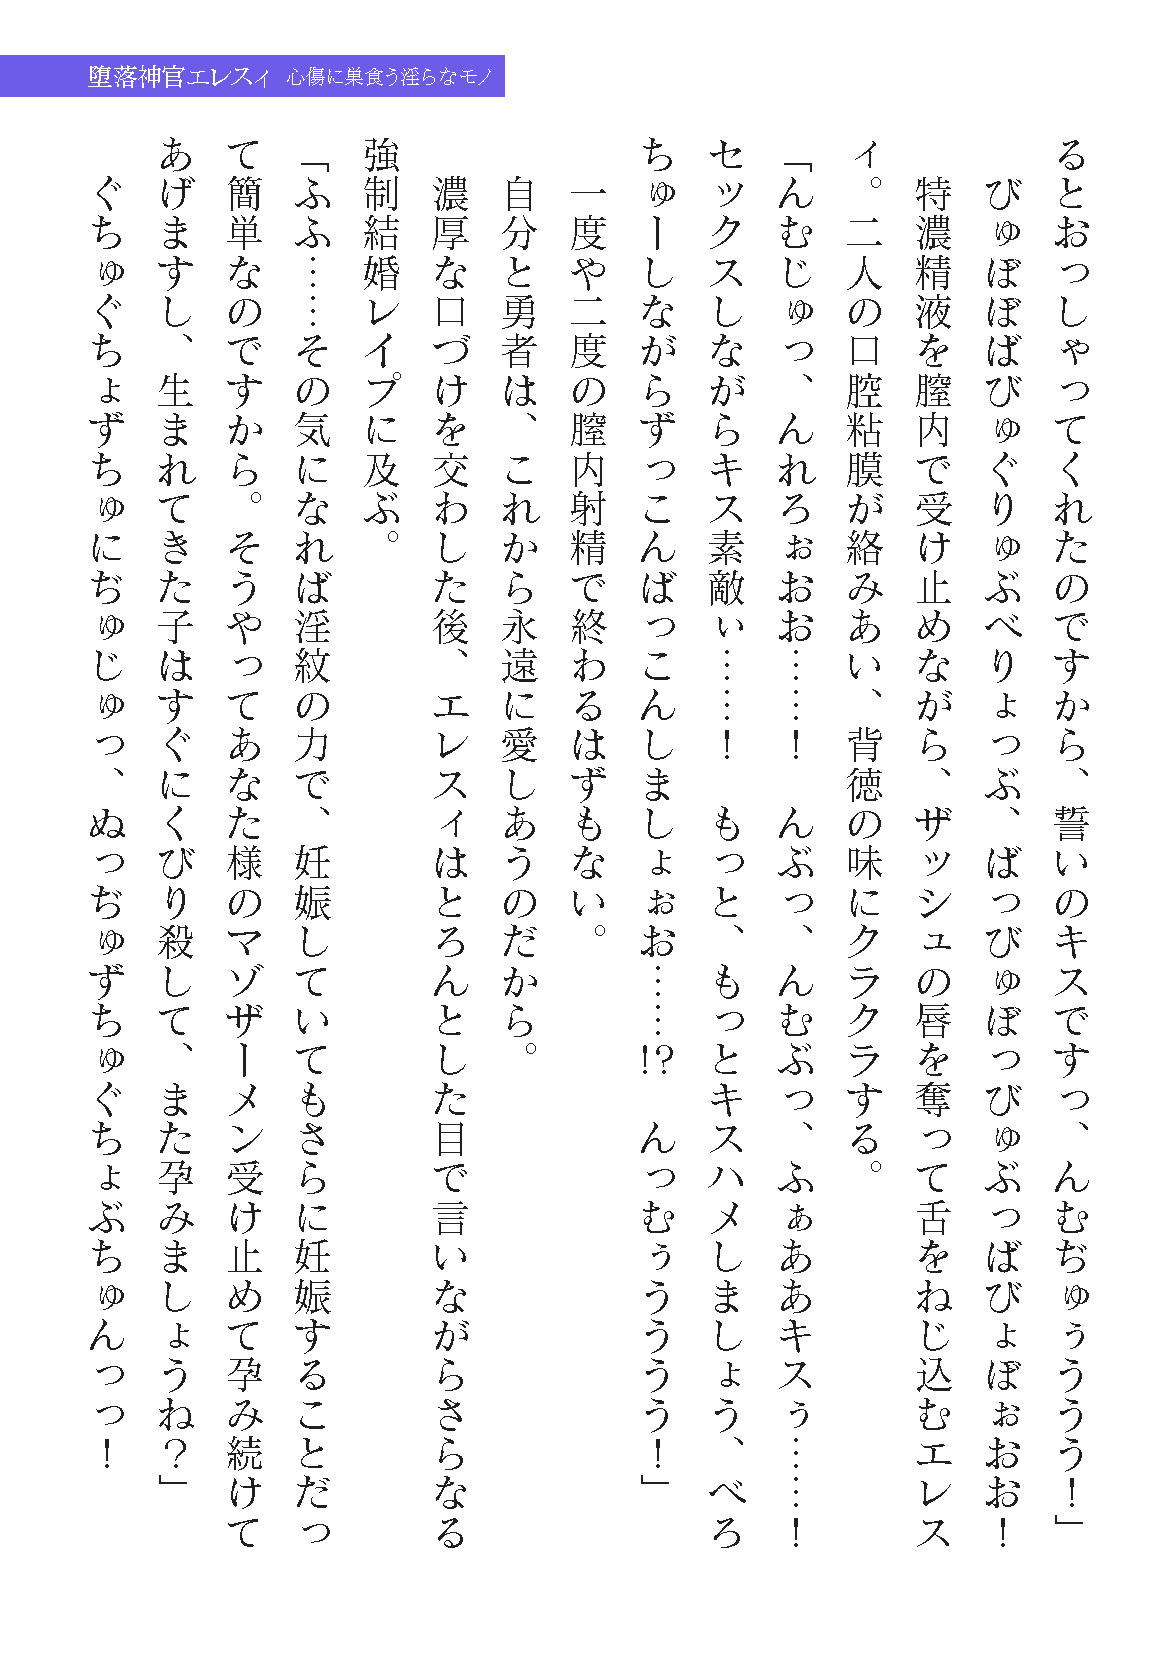 堕落神官エレスィ 心傷に巣食う淫らなモノ
るとおっしゃってくれたのですから、誓いのキスですっ、んむぢゅぅううう！」
びゅぼぼばびゅぐりゅぶべりょっぶ、ばっびゅぼっびゅぶっばびょぼぉおお！
特濃精液を膣内で受け止めながら、ザッシュの唇を奪って舌をねじ込むエレス
ィ。二人の口腔粘膜が絡みあい、背徳の味にクラクラする。
「んむじゅっ、んれろぉおお……！　んぶっ、んむぶっ、ふぁああキスぅ……！
セックスしながらキス素敵ぃ……！　もっと、もっとキスハメしましょう、べろ
ちゅーしながらずっこんばっこんしましょぉお……!?　んっむぅうううう！」
一度や二度の膣内射精で終わるはずもない。
自分と勇者は、これから永遠に愛しあうのだから。
濃厚な口づけを交わした後、エレスィはとろんとした目で言いながらさらなる
強制結婚レイプに及ぶ。
「ふふ……その気になれば淫紋の力で、妊娠していてもさらに妊娠することだっ
て簡単なのですから。そうやってあなた様のマゾザーメン受け止めて孕み続けて
あげますし、生まれてきた子はすぐにくびり殺して、また孕みましょうね？」
ぐちゅぐちょずちゅにぢゅじゅっ、ぬっぢゅずちゅぐちょぶちゅんっっ！